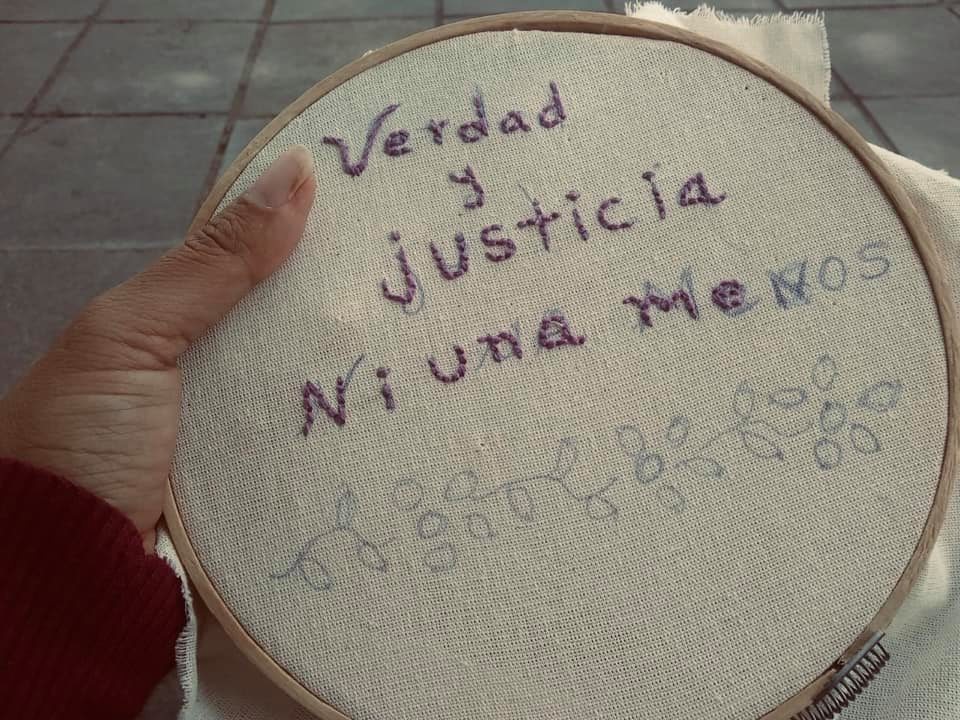 Verdad
y
justicia
Ni una MeNOS